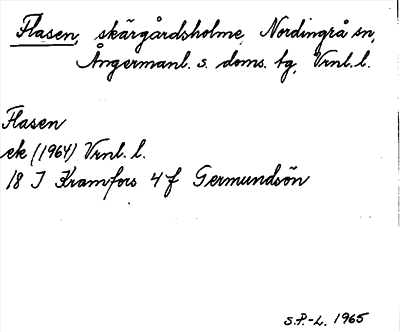 Flasen, skärgårdsholme, Nordingrå sn,
Ångermanl. s. doms. tg, Vrnl. l.
Flasen
ek (1964) Vrnl. l.
18 I Kramfors 4 f Germundsön
S.P.-L. 1965